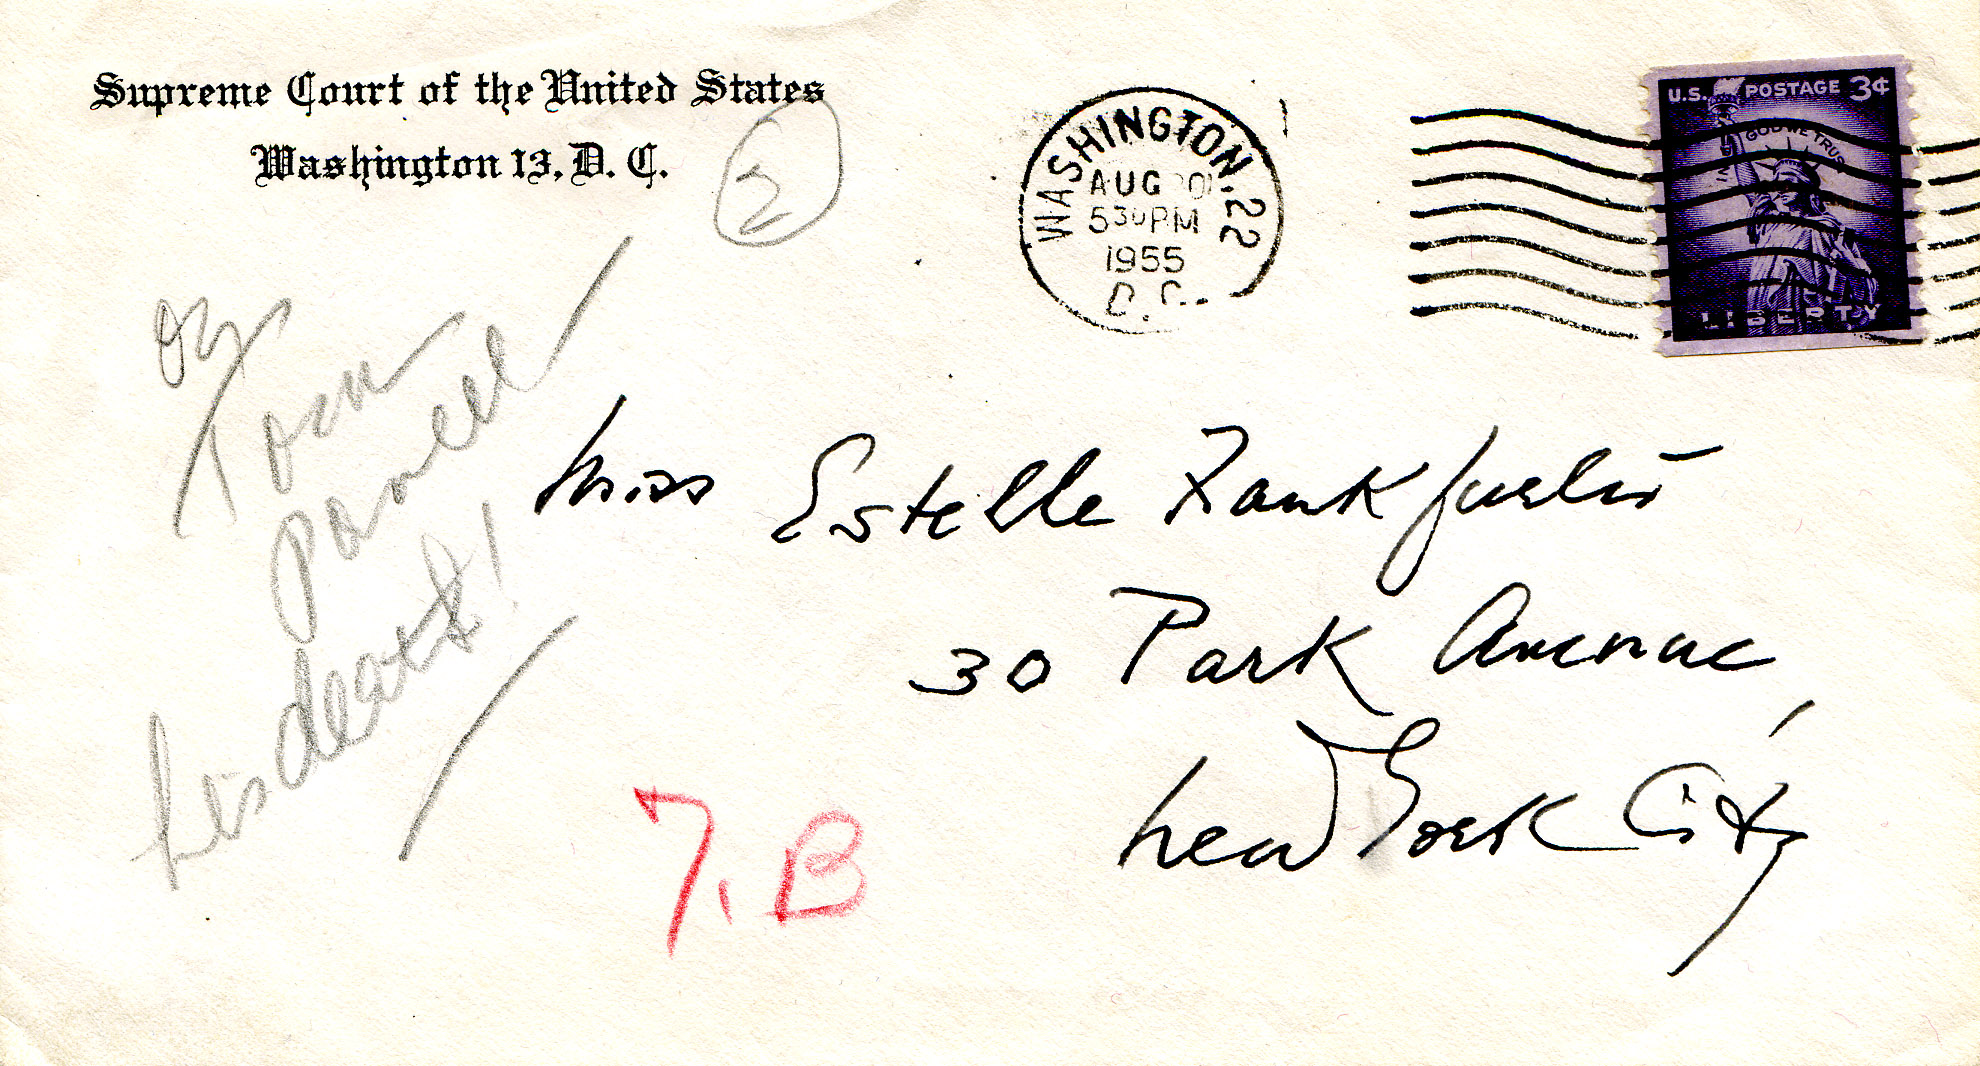 Supreme Court of the United States
Washington 13, D. C.
2
WASHINGTON. 22
AUG 20
530PM
1955
D. C.
U.S. POSTAGE 3¢
IN GOD WE TRUST
LIBERTY
Tom
Powell
his death!
Miss Estelle Frankfurter
30 Park Avenue,
New York City
7. B